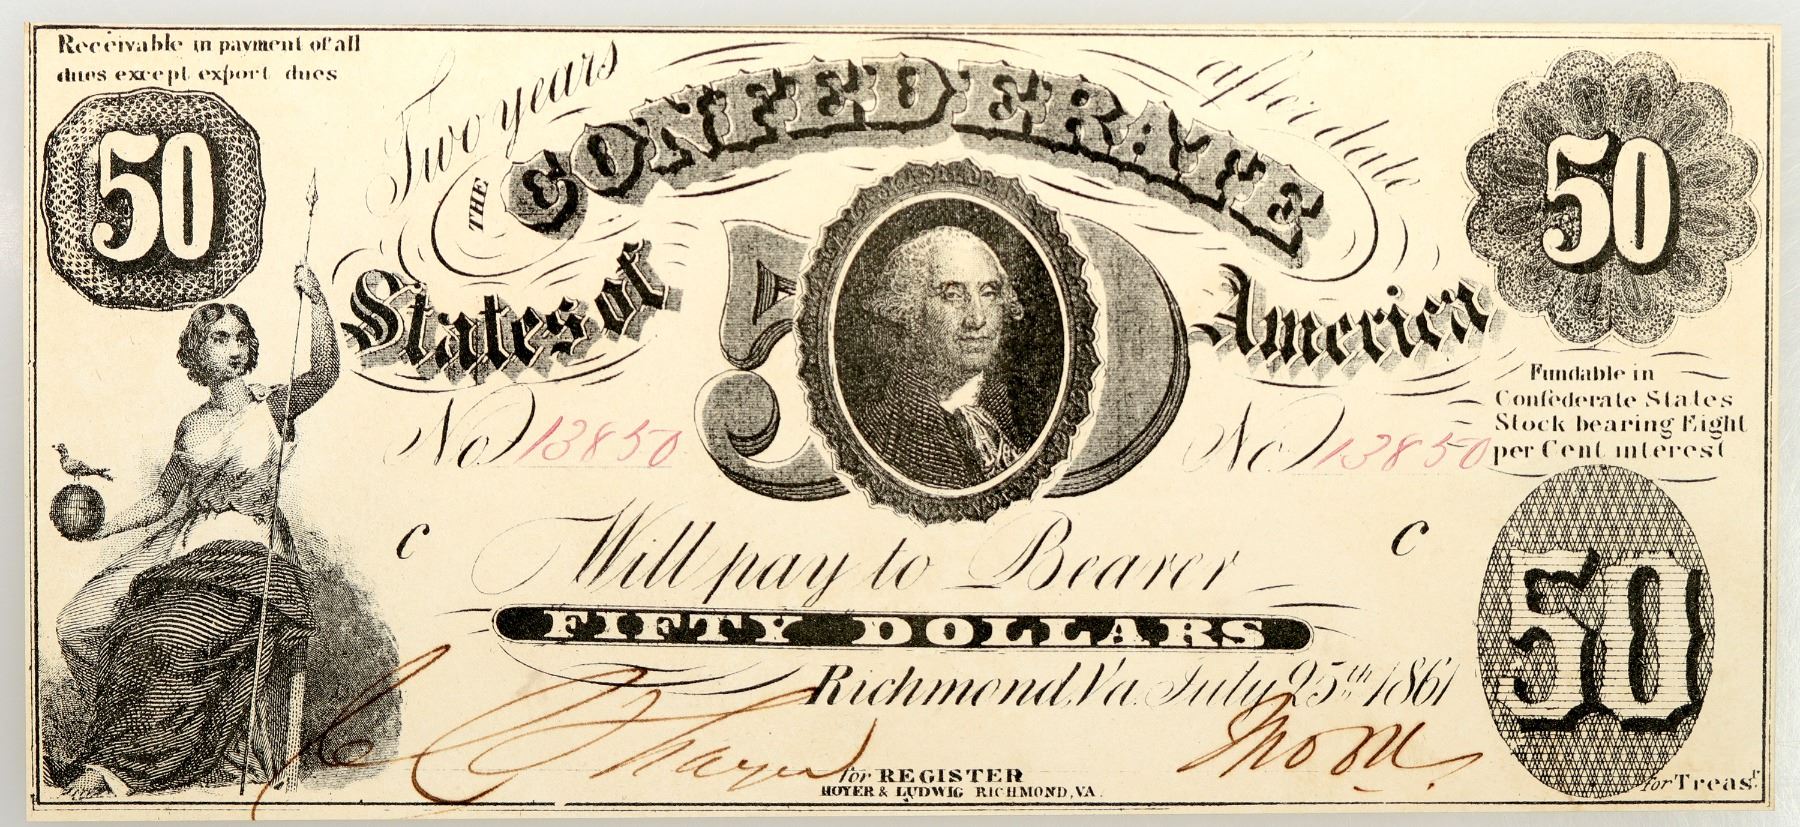 Receivable in payment of all
dues except export dues
50
Two years
after date
50
THE CONFEDERATE
States of
America
50
Fundable in
Confederate States
Stock bearing Eight
per Cent interest
No 13850
No 13850
C
C
Will pay to Bearer
FIFTY DOLLARS
50
Richmond, Va. July 25th 1861
for REGISTER
for Treasr.
HOYER & LUDWIG RICHMOND, VA.